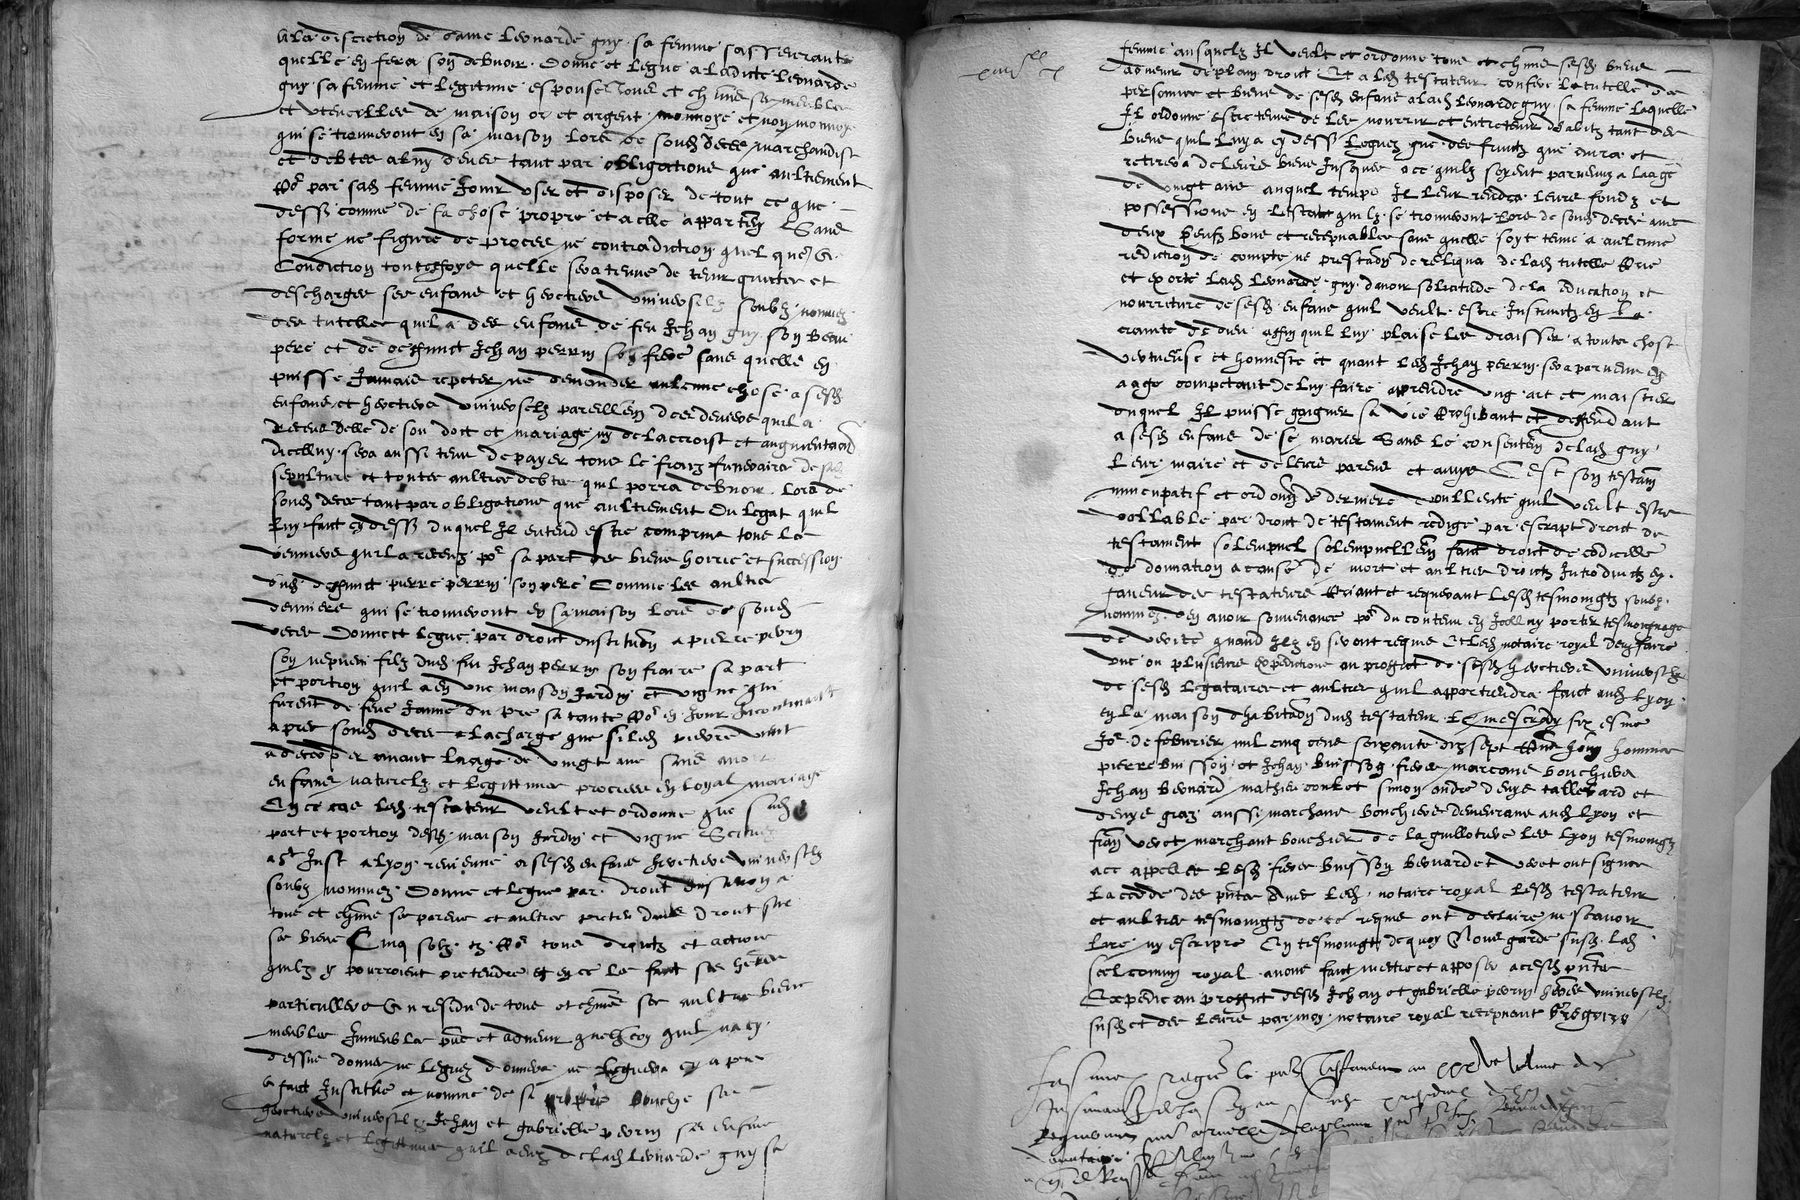 a la discretion de dame Leonarde guy sa femme sasseurant
quelle en fera son debvoir Donne et legue a ladicte Leonarde
guy sa femme et legitime espouse tous et ch'uns ses meubles
et utencilles de maison or et argent monnoye et non monnoye
qui se trouveront en sa maison lors de soud deces marchandise
et debtes a luy deues tant par obligations que aultrement
po' par sad femme Jouir user et disposer de tout ce que
dess' comme de sa chose propre et a elle appartien' Sans
forme ne figure de proces ne contradiction quelquo'
Condiction toutesfoys quelle sera tenue de tenir quicte et
descharger ses enfans et heretiers universelz soubz nommez
des tutelles quil a des enfans de feu Jehan guy son beau
pere et de deffunct Jehan perrin son frere sans quelle en
puisse Jamais repeter ne demander aulcune chose a sesd
enfans et heretiers universelz pareillem' des deniers quil a
receus delle de son dott et mariage ny de laccroist et augmentaon
dicelluy sera aussi tenue de payer tous les fraiz funeraires de sa
sepulture et toutes aultres debtes quil porra debvoir lors de
soud deces tant par obligations que aultrement Ou legat quil
luy faict cy dess' duquel Il entend estre comprins tous les
deniers quil a receuz po' sa part des biens hoirie et succession
dud deffunct pierre perrin son pere Comme les aultres
deniers qui se trouveront en sa maison lors de soud
deces Donne et legue par droit dinstitu'on a pierre perrin
son nepveu filz dud feu Jehan perrin son fraire sa part
et portion quil a en une maison Jardin et vigne qui
furent de feue Janne du pre sa tante po' en Jouir Incontinant
apres soud deces a la charge que si led pierre vient
a deceder avant laage de vingt ans sans avoir
enfans naturelz et legittimes procrees en loyal mariage
En ce cas led testateur veult et ordonne que sad
part et portion desd maison Jardin et vigne Scituez
a St Just a lyon revienne a sesd enfans heretiers universelz
soubz nommez Donne et legue par droit dinstitu'on a
tous et ch'uns ses parens et aultres pretendans droit sur
ses biens Cinq solz tz po' tous droictz et actions
quilz y pourroient pretendre et en ce les faict ses heretiers
particulliers Et Au residu de tous et ch'uns ses aultres biens
meubles Immeubles p'ns et advenir quelzcon' quil na cy
dessus donne ne leguez donnera ne leguera cy apres
a faict Institue et nomme de sa propre bouche ses
heretiers universelz Jehan et gabrielle perrin ses enfans
naturelz et legittimes quil a eus de lad Leonarde guy sa
femme ausquelz Il veult et ordonne tous et ch'uns sesd biens
advenir de plain droit Et a led testateur confere la tutelle des
personnes et biens de sesd enfans a lad Leonarde guy sa femme laquelle
Il ordonne estre tenue de les nourrir et entretenir dhabitz tant des
biens quil luy a cy dess' leguez que des fruitz que aura et
retirera de leurs biens Jusques a ce quilz soyent parvenuz a laage
de vingt ans auquel temps Il leur rendra leurs fondz et
possessions en lestat quilz se trouveront lors de soud deces avec
deux preufz bons et recepvables sans quelle soyt tenue a aulcune
rediction de compte ne prestation de reliqua de lad tutelle Prie
et exorte lad Leonarde guy davoir solicitude de la education et
nourriture de sesd enfans quil veult estre Instruictz en la
crainte de dieu affin quil luy plaise les draisser a toutes choses
vertueuse et honneste et quant led Jehan perrin sera parvenu en
aage competant de luy faire aprendre ung art et maistier
duquel Il puisse gaigner sa vie Prohibant et deffendant
a sesd enfans de se marier Sans le consentem' de lad guy
leur maire et de leurs parens et amys C'est son testam'
nuncupatif et ordon' de derniere voullente quil veult estre
vallable par droit de testament redige par escript droit de
testament solempnel solempnellem' faict droit de codicille
de donnation a cause de mort et aultres droictz Introduictz en
faveur des testateurs Priant et requerant lesd tesmoingtz soubz
nommez den avoir souvenance po' du contenu en Icelluy porter tesmongnage
de verite quand Ilz en seront requis Et led notaire royal den faire
une ou plusieurs expeditions au proffict de sesd heretiers universelz
de sesd legataires et aultres quil appartiendra faict aud Lyon
en la maison dhabita'on dud testateur le mescredy six'esme
Jo' de febvrier mil cinq cens soixante dix sept P'ns hon' hommes
pierre buisson et Jehan buisson freres marchans bouchiers
Jehan bernard mathieu simon andre denys tallebard et
denys graz aussi marchans bouchiers demeurans aud Lyon et
fran' veret marchant bouchier de la guillotiere les Lyon tesmoingz
ace appellez lesd freres buisson bernard et veret ont signe
la cedde des p'ntes avec led notaire royal led testateur
et aultres tesmoingtz de ce requis ont declaire ne scavoir
lire ny escripre En tesmoingt de quoy Nous garde susd lad
scel commun royal avons faict mectre et apposer a cesd p'ntes
Expedie au proffict desd Jehan et gabrielle perrin heretiers universelz
susd et des leurs par moy notaire royal recepvant